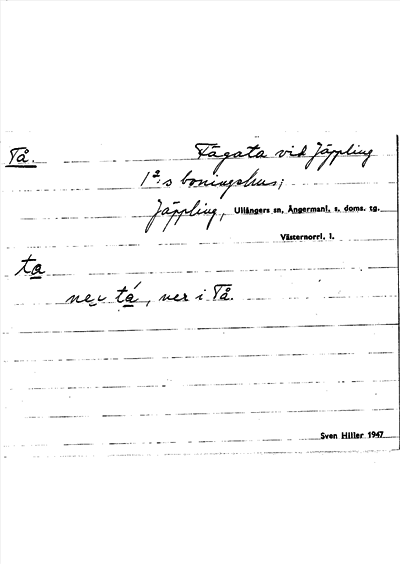 Tå. Fägata vid Jäppling
1²:s boningshus;
Jäppling, Ullångers sn, Ångermanl. s. doms. tg.
Västernorrl. l.
ta
ne v tá, ner i Tå.
Sven Hiller 1947